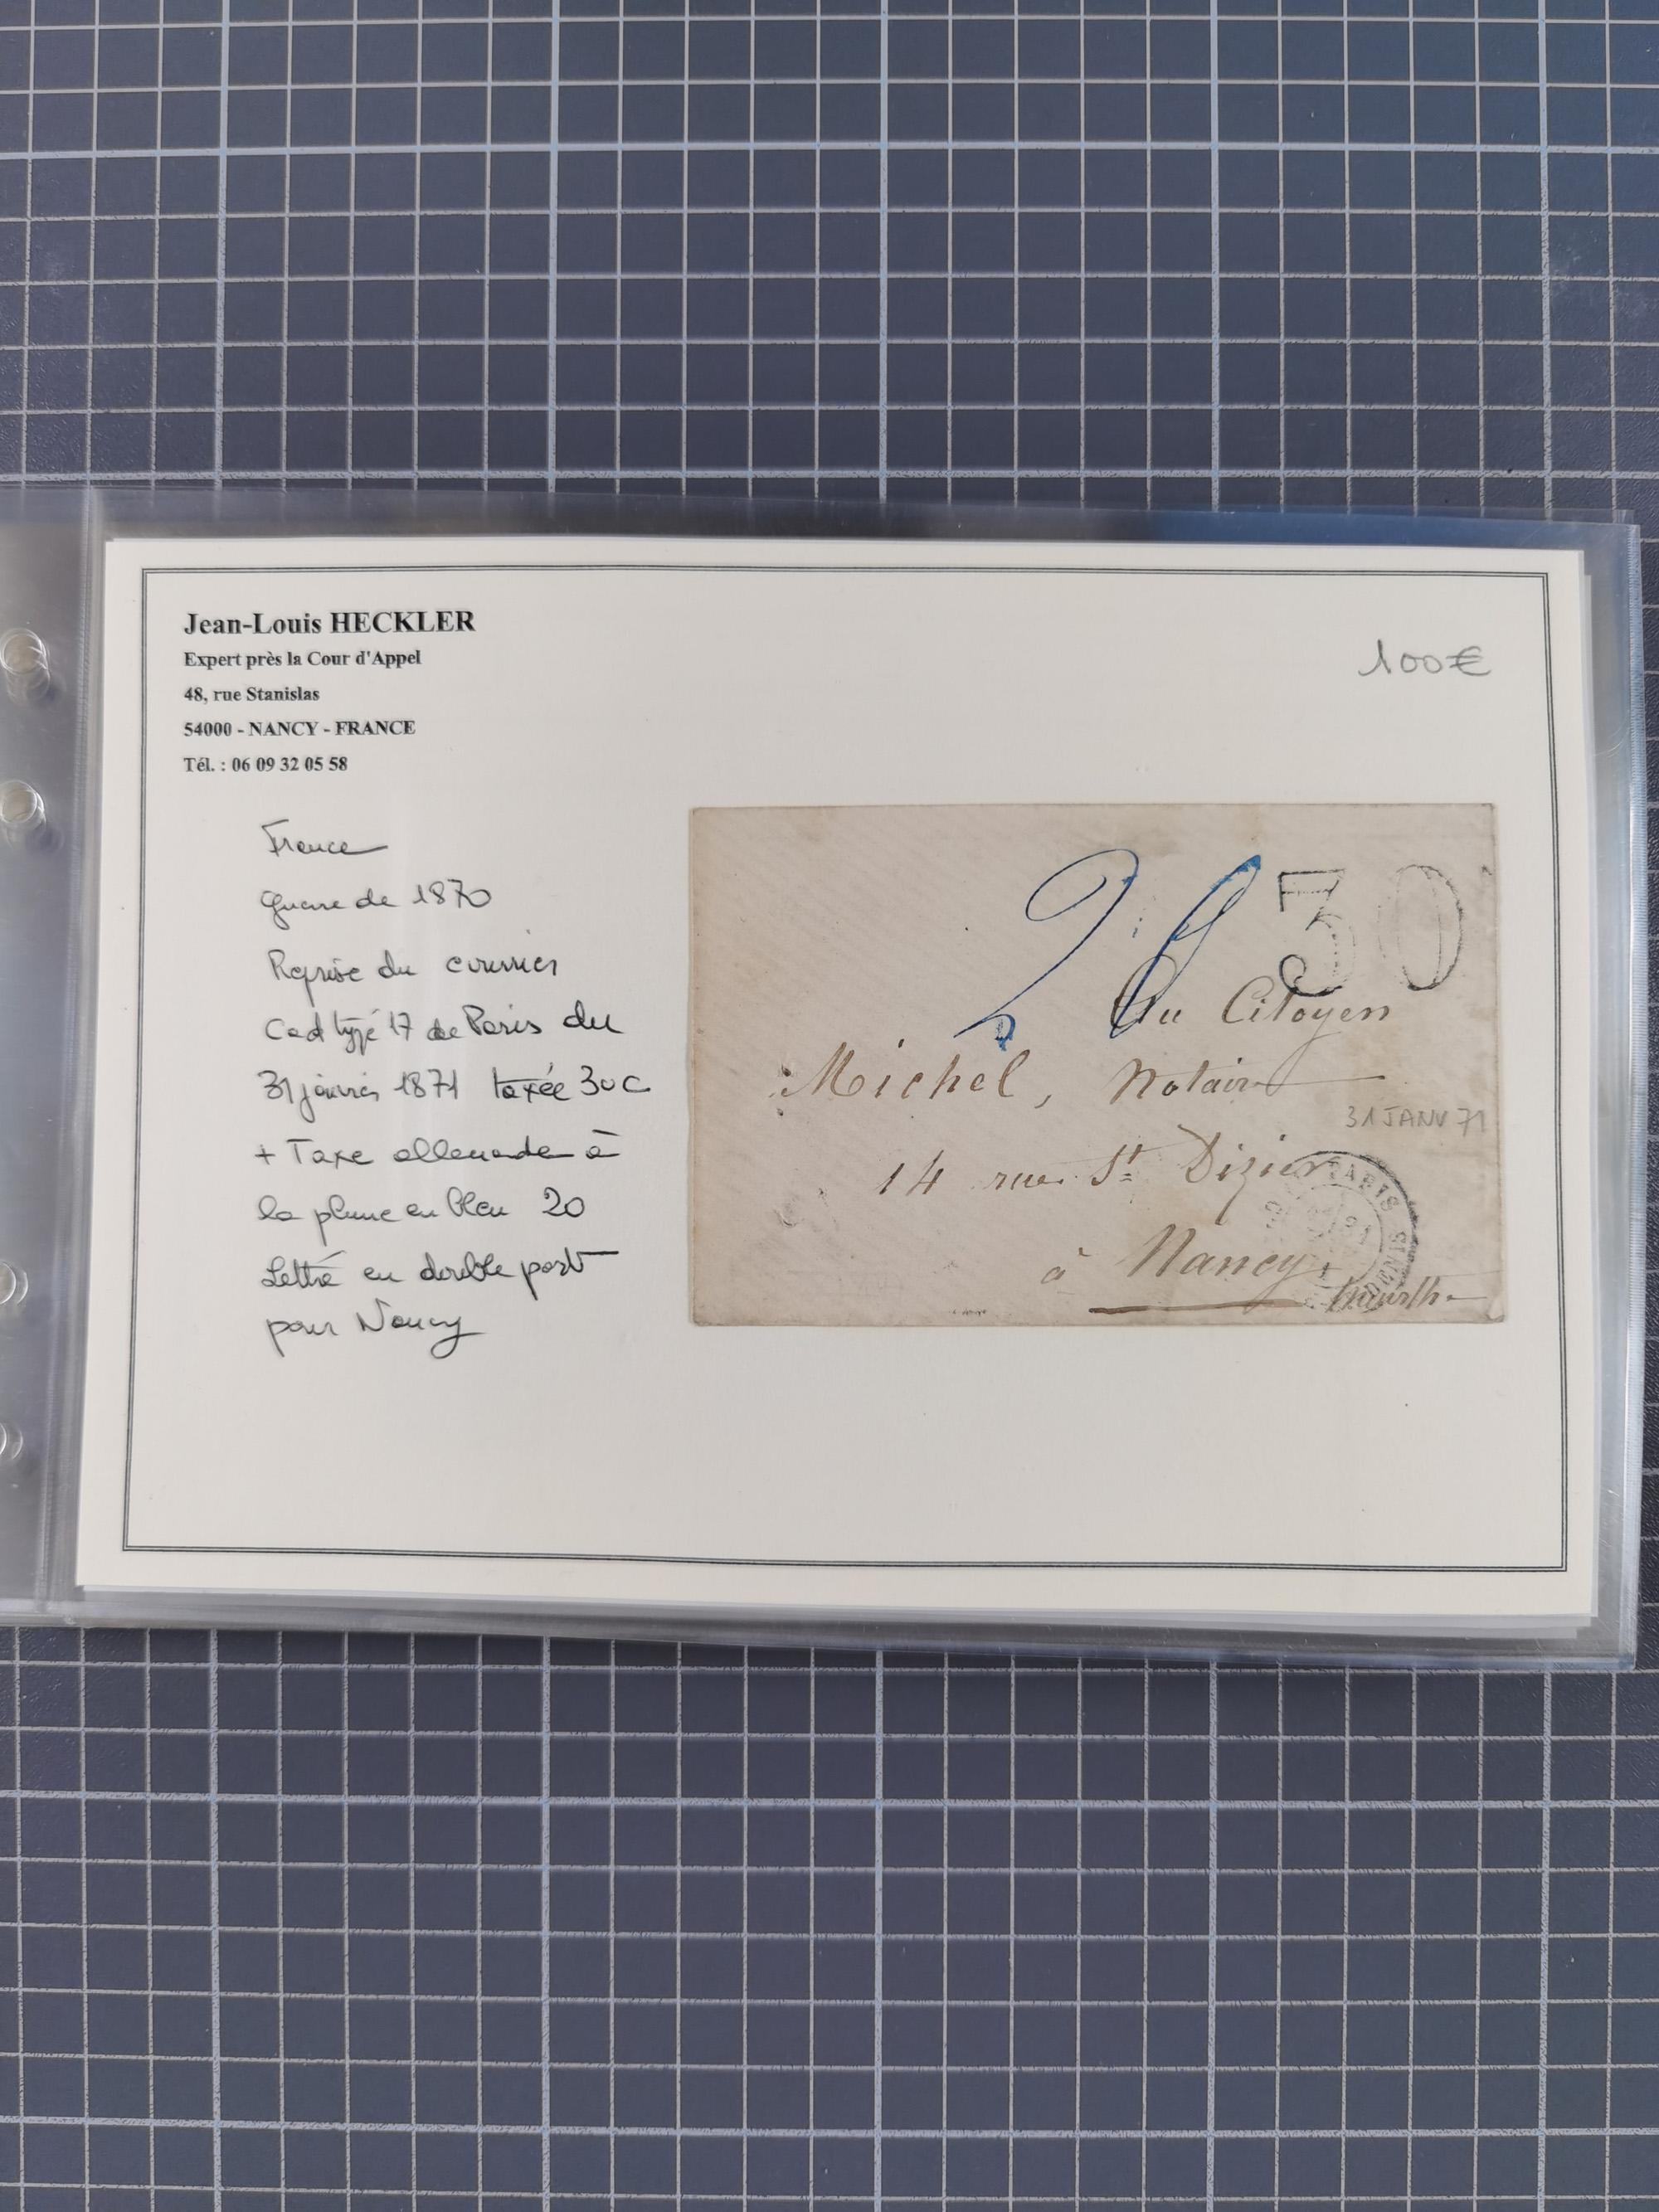 Jean-Louis HECKLER
Expert près la Cour d'Appel
48, rue Stanislas
54000 - NANCY - FRANCE
Tél. : 06 09 32 05 58
100€
France
guerre de 1870
Reprise du courrier
Cad type 17 de Paris du
31 janvier 1871 taxée 30c
+ Taxe allemande à
la plume en bleu 20
Lettre en double port
pour Nancy
30
Au Citoyen
Michel, Notaire
31 JANV 71
14 rue St Dizier
à Nancy
Meurthe
PARIS